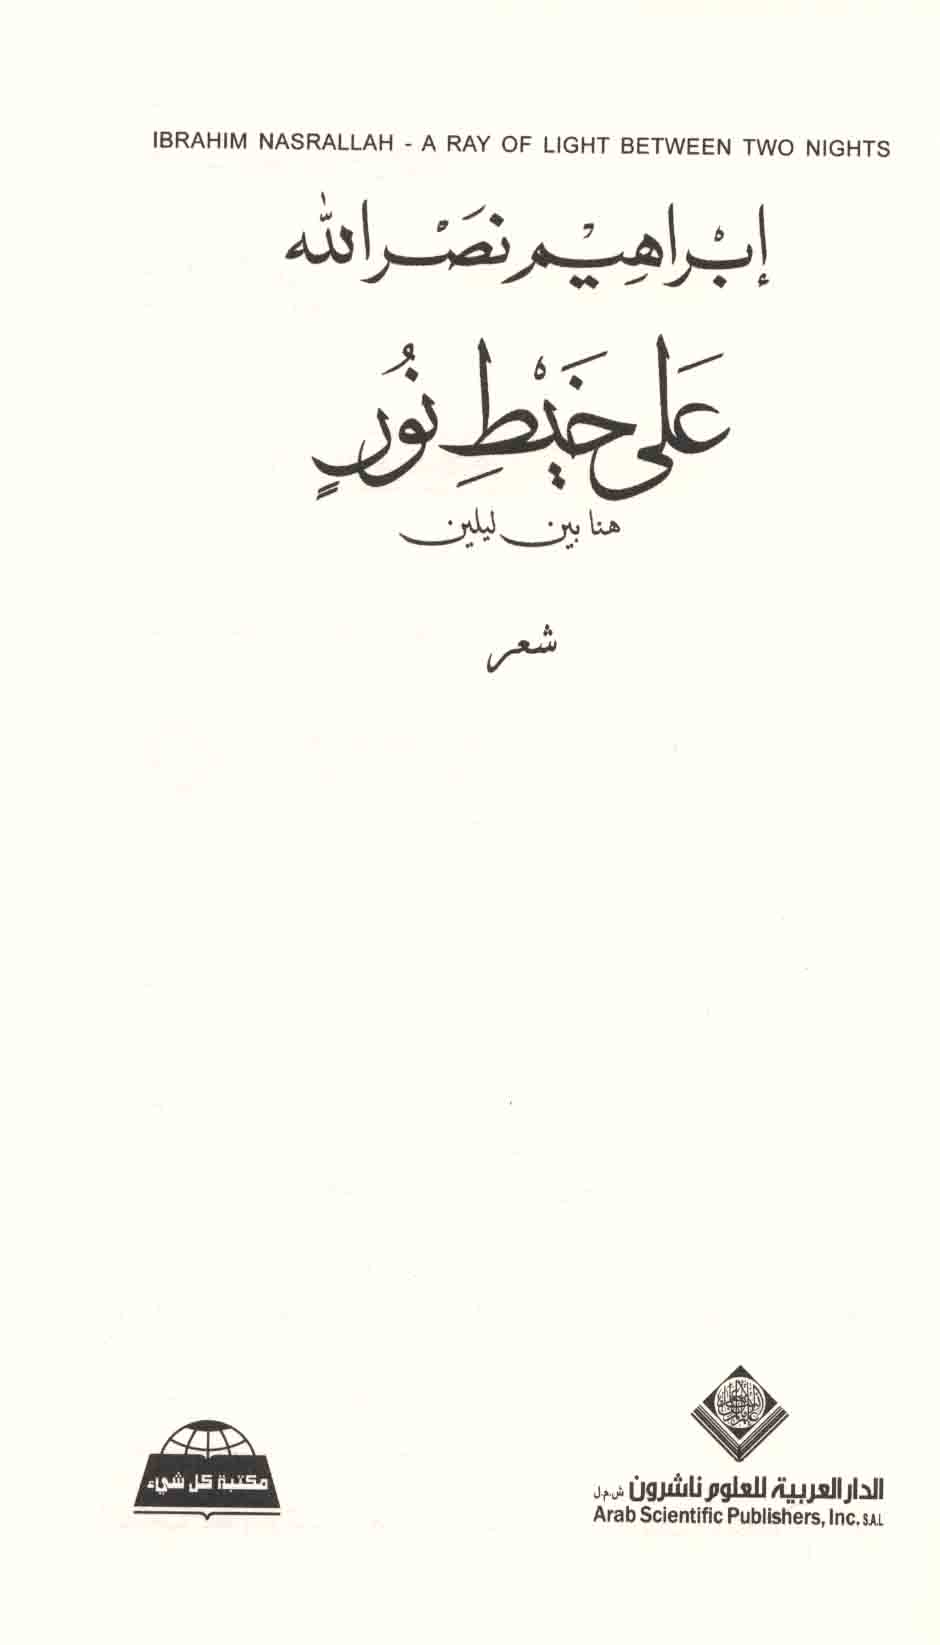 IBRAHIM NASRALLAH - A RAY OF LIGHT BETWEEN TWO NIGHTS
إبْراهِيْم نصَْر الله
عَلى خَيْطِ نُورٍ
هنا بين ليلين
شعر
مكتبة كل شيء
الدار العربية للعلوم ناشرون ش.م.ل
Arab Scientific Publishers, Inc. S.A.L